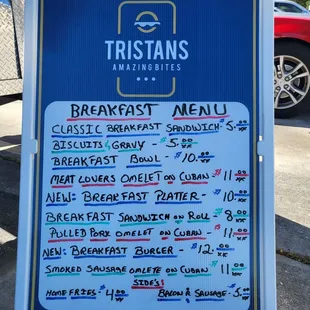 TRISTANS
AMAZINGBITES
BREAKFAST MENU
CLASSIC BREAKFAST SANDWICH - 5.00
BISCUITS & GRAVY - $5.00
BREAKFAST BOWL - $10.00
MEAT LOVERS OMELET ON CUBAN - $11.00
NEW: BREAKFAST PLATTER - $10.00
BREAKFAST SANDWICH ON ROLL $8.00
PULLED PORK OMELET ON CUBAN - $11.00
NEW: BREAKFAST BURGER - $12.00
SMOKED SAUSAGE OMLETE ON CUBAN $11.00
SIDE'S
HOME FRIES - $4.00
BACON & SAUSAGE - $5.00